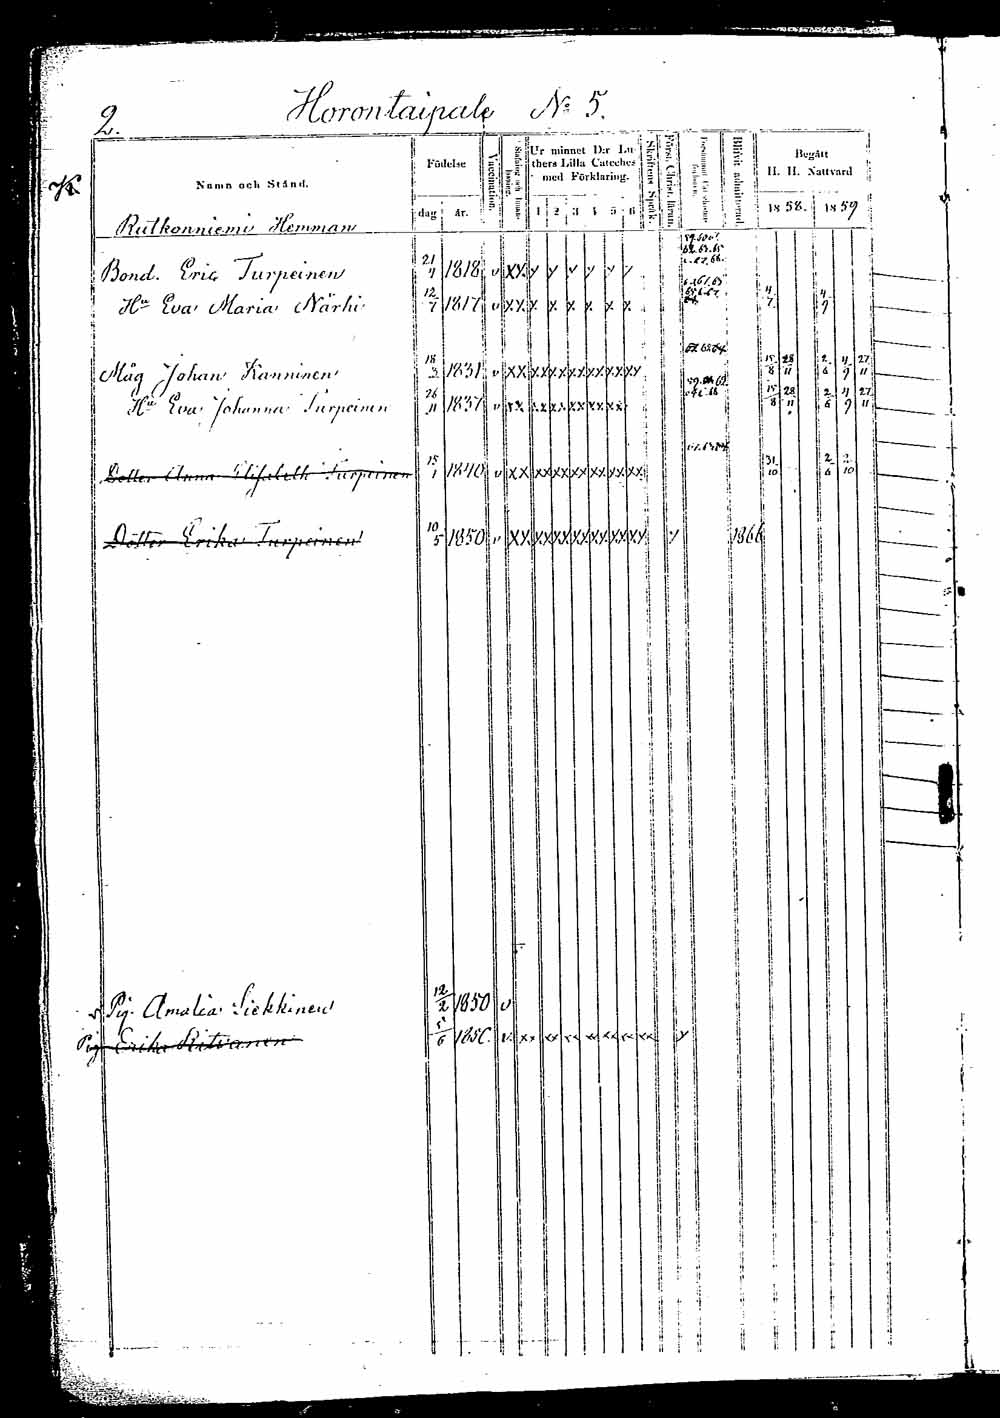 2. Horontaipale No 5.
Namn och Stånd.
Födelse
dag år.
Vaccination.
Ur minnet D:r Lu-
thers Lilla Cateches
med Förklaring.
1 2 3 4 5 6
Skriftens Språk.
Blifvit admitterad
Begått
H. H. Nattvard
1858. 1859
Rutkonniemi Hemman
Bond. Eric Turpeinen 21/4 1818 v
Hu Eva Maria Närhi 12/7 1817 v xx x x x x x x 4/7 4/9
Måg Johan Kanninen 18/3 1831 v xx xx xx xx xx xx xx 15/8 28/11 2/6 4/9 27/11
Hu Eva Johanna Turpeinen 26/11 1837 v xx xx xx xx xx xx xx 15/8 28/11 2/6 4/9 27/11
Dotter Anna Elisabeth Turpeinen 15/1 1840 v xx xx xx xx xx xx xx 31/10 2/6 2/10
Dotter Erika Turpeinen 10/5 1850 v xx xx xx xx xx xx xx y 1866
Pig. Amalia Siekkinen 12/2 1850 v
Pig Erika 5/6 v xx xx xx xx xx xx xx y